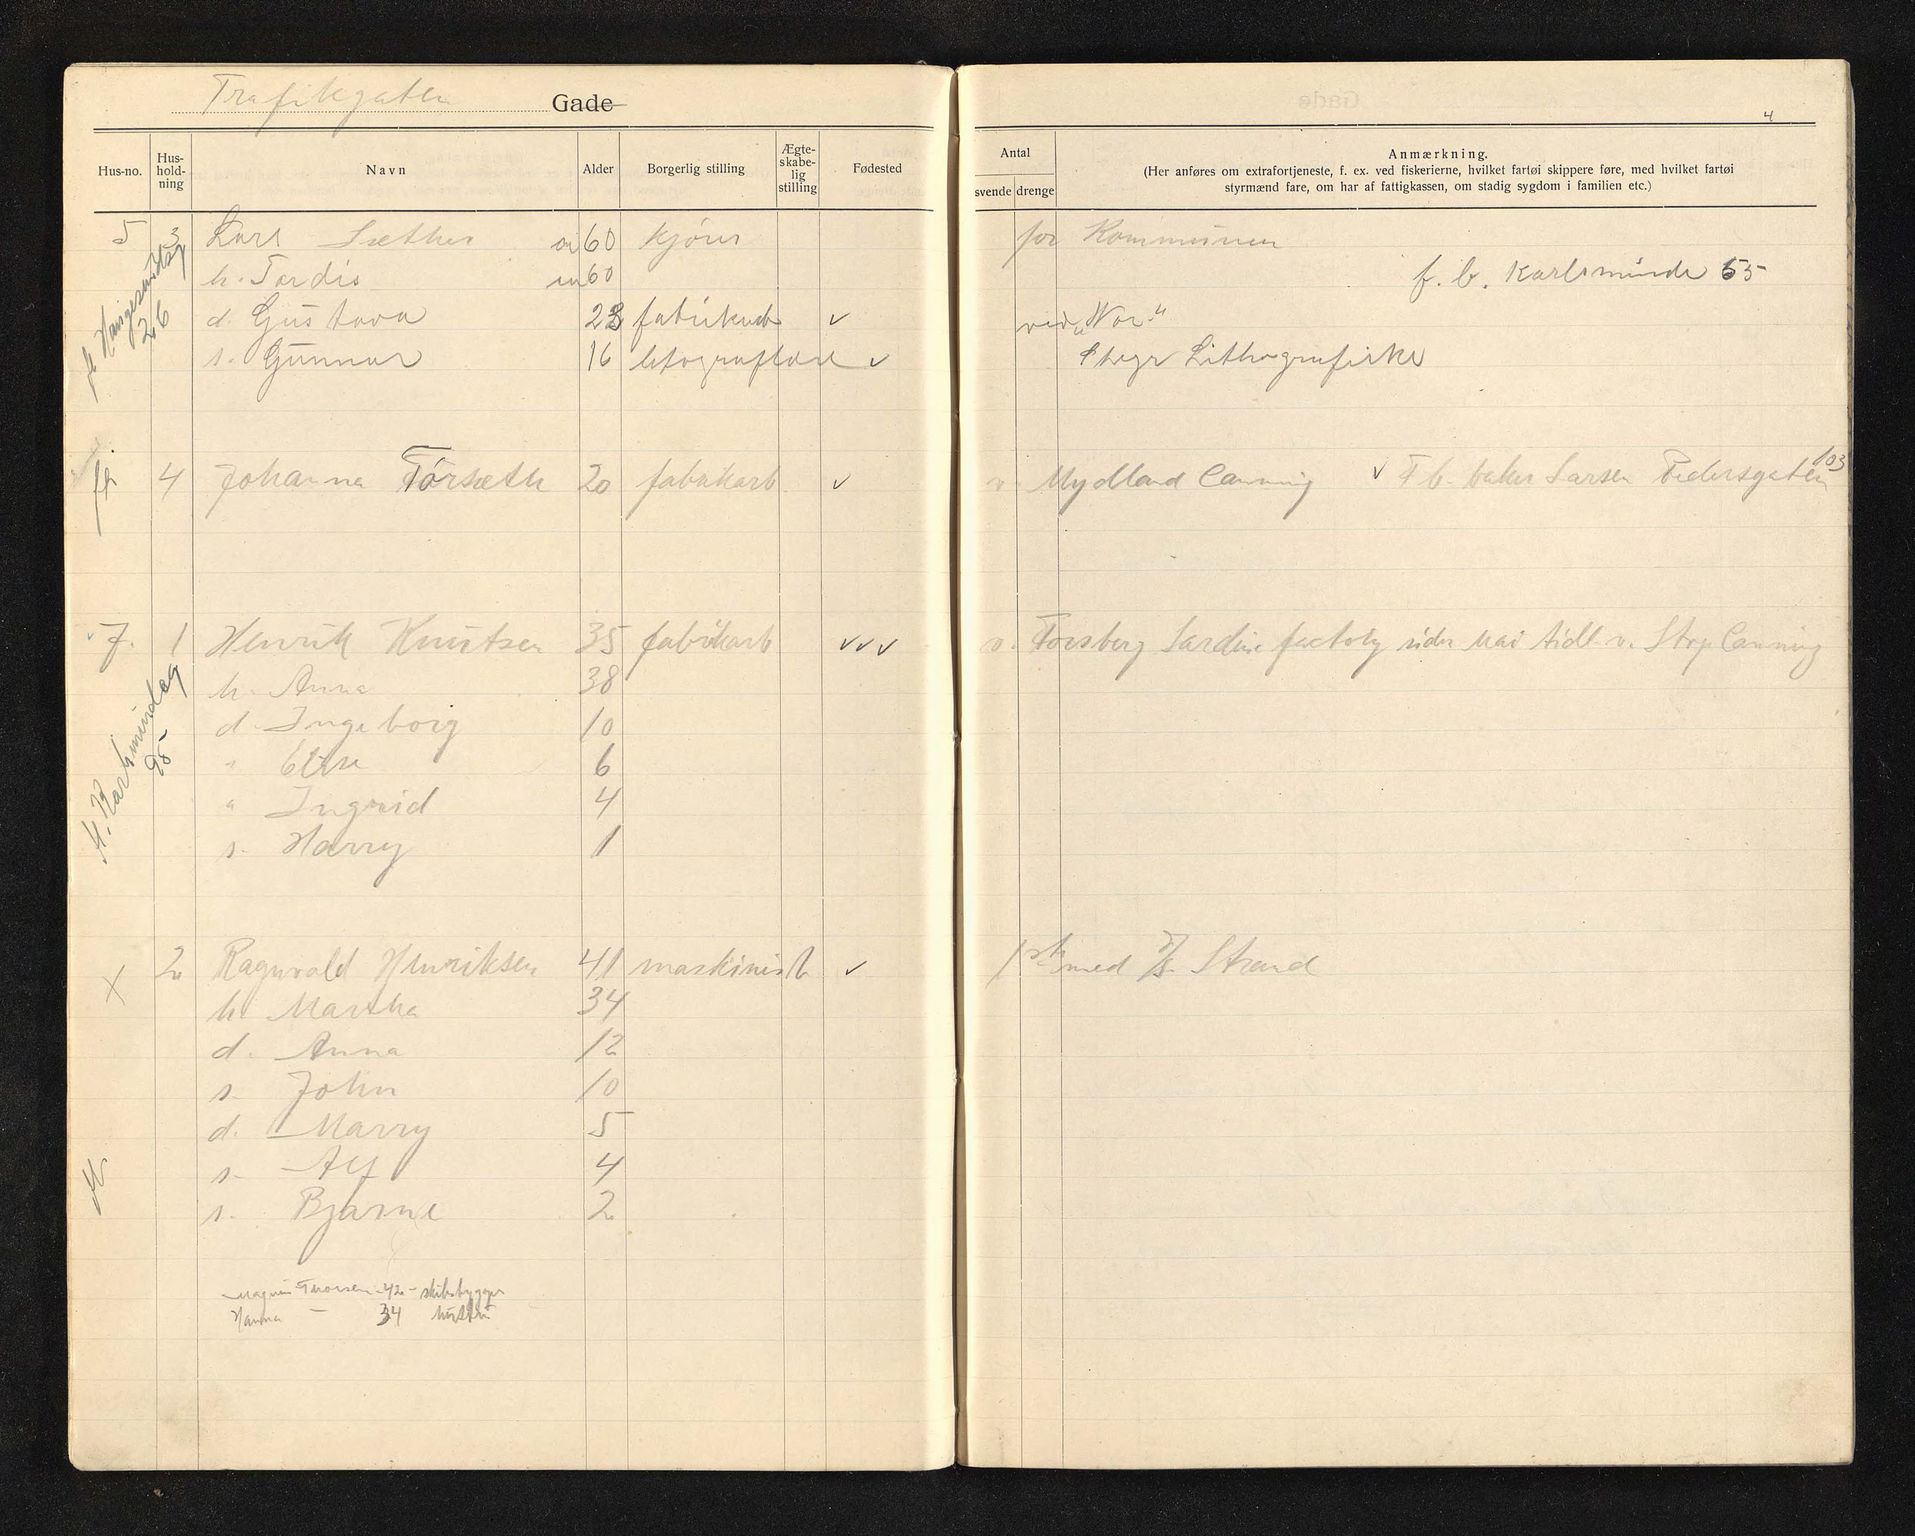 Trafikgaten Gade
4
Hus-no. Hus-hold-ning Navn Alder Borgerlig stilling Ægte-skabe-lig stilling Fødested
Antal svende drenge
Anmærkning.
(Her anføres om extrafortjeneste, f. ex. ved fiskerierne, hvilket fartøi skippere føre, med hvilket fartøi
styrmænd fare, om har af fattigkassen, om stadig sygdom i familien etc.)
5 3 Lars Sæther 60 kjører for Kommunen
h. Tordis 60 f. b. Karlsminde 55
d. Gustava 23 fabrikarb ✓ ved „Nor"
s. Gunnar 16 ✓ Lithografiske
Haugesundsg
26
ft 4 Johanna Torsæth 20 fabrikarb ✓ v. Mydland Canning ✓ F b. baker Larsen Pedersgaten 103
7. 1 Henrik Knutsen 35 fabrikarb ✓✓✓ v. Forsberg Sardine factory siden Mai tidl. v. Canning
h. Anna 38
d. Ingeborg 10
" Else 6
" Ingrid 4
s. Harry 1
ft. Karlsmindeg
95
x 2 Ragnvald Henriksen 41 maskinist ✓ med D/S Strand
h. Martha 34
d. Anna 12
s. John 10
d. Marry 5
s. Alf 4
ft
s. Bjarne 2
Magnus Thorsen 42 - skibsbygger
Hanna — 34 hustru